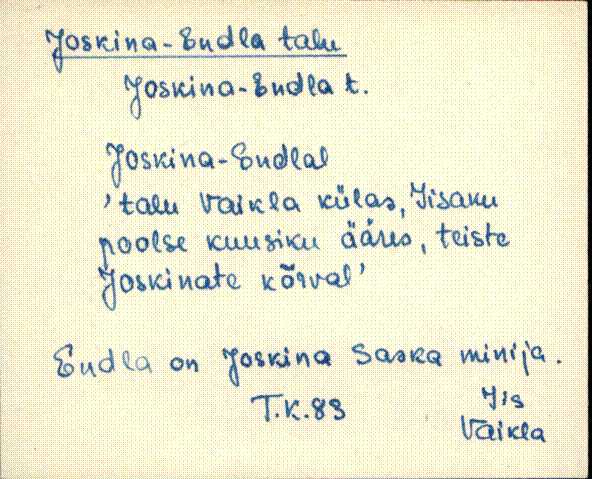 Joskina-Endla talu
Joskina-Endla t.
Joskina-Endlal
'talu Vaikla külas, Iisaku
poolse kuusiku ääres, teiste
Joskinate kõrval'
Endla on Joskina Saska minija.
T.K.83
Iis
Vaikla